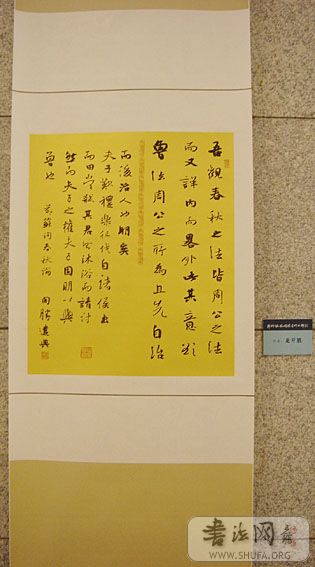 吾觀春秋之法皆周公之法
而又詳內而畧外此其意欲
魯法周公之所為且先自治
而後治人也明矣
夫子歎禮樂征伐自諸侯出
而田常弑其君則沐浴而請討
然而天子之權夫子固明以與
魯也 蘇洵春秋論 開勝遣興
书法网
WWW.SHUFA.ORG